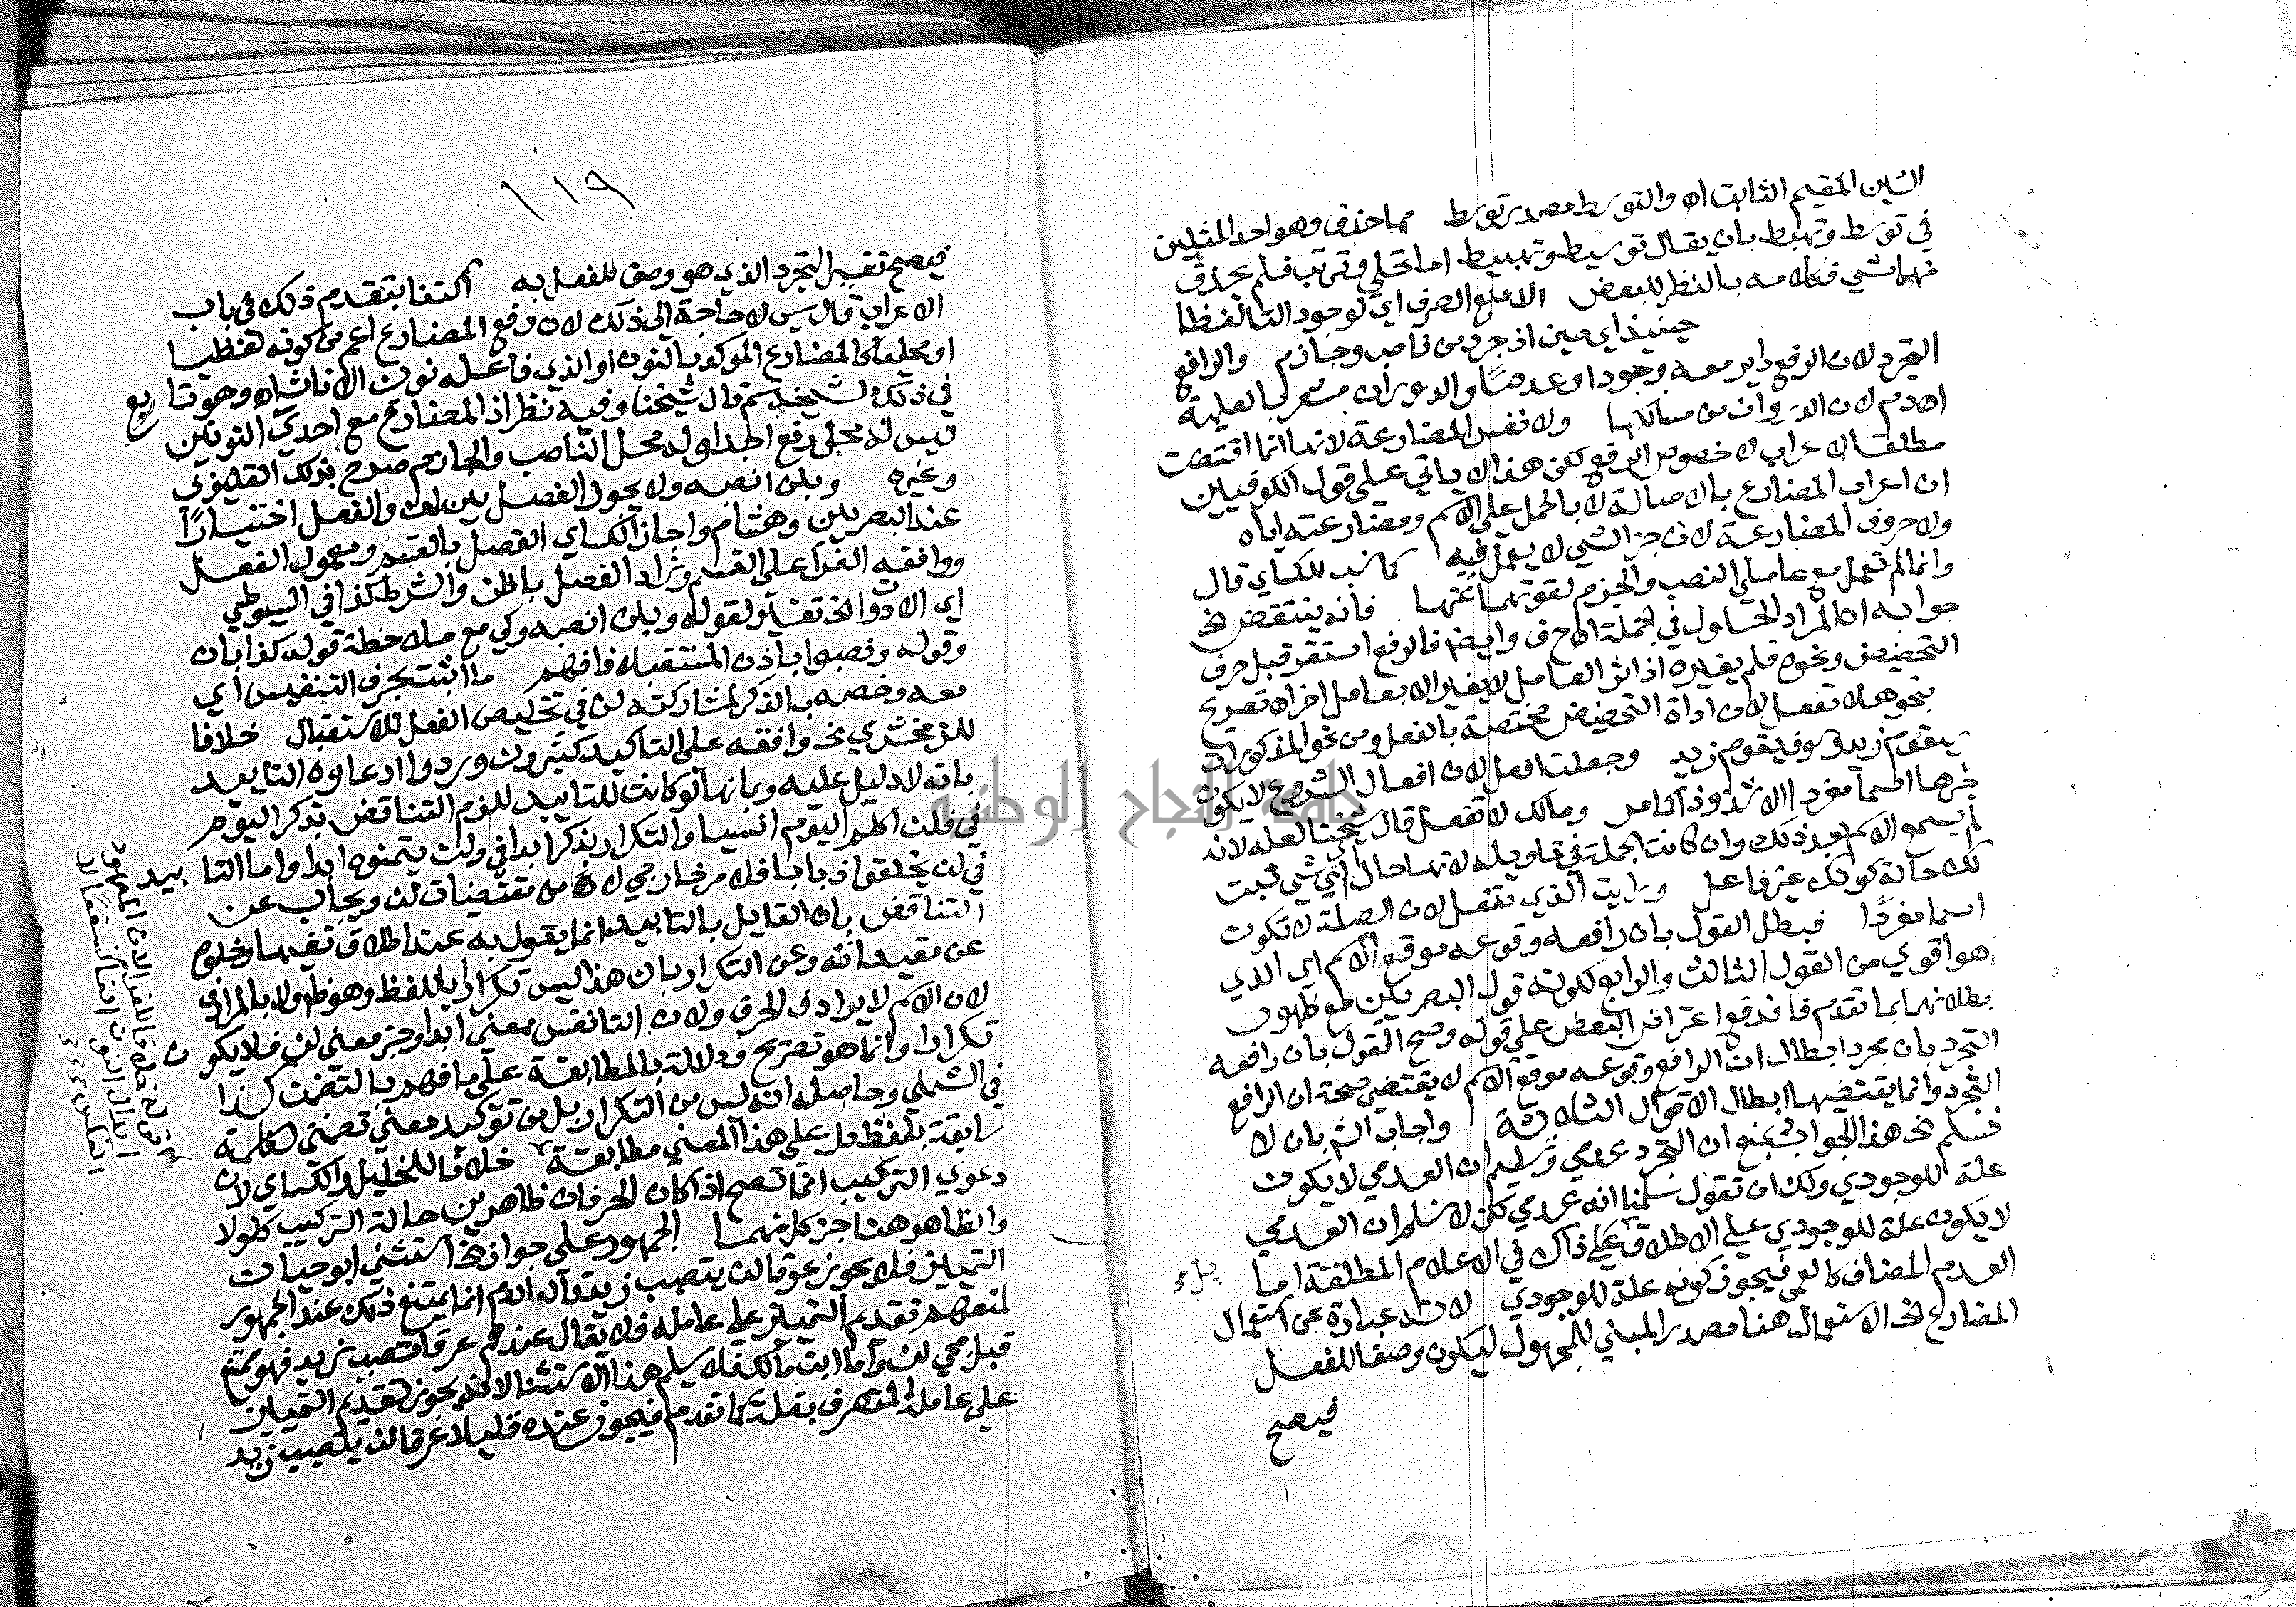 السين المقيم الثابت اه والتوسط مصدر توسط مما حذف وهو احد المثلين
في توسط وتهبط بان يقال توسيط وتهبيط اما تحلي وترتب فلم يحذف
منهما شي فكلامه بالنظر للبعض الامنع الصرف اي لوجود التا لفظا
حينيذ اي حين اذ جرد من ناصب وجازم والرافع
التجرد لان الرفع داير معه وجودا وعدما والدوران مشعر بالعلية
اهدم لان الدوران من مسالكها ولا نفس المضارعة لانها انما اقتضت
مطلق الاعراب لا خصوص الرفع لكن هذا لا ياتي على قول الكوفيين
ان اعراب المضارع بالاصالة لا بالحمل على الاسم ومضارعته اياه
ولا حروف المضارعة لان جز الشي لا يعمل فيه كما نسب للكساي قال
وانما لم تعمل مع عاملي النصب والجزم لقوتهما عنها فانه ينتقض الخ
جوابه ان المراد الحلول في الجملة الاحرف وايضا فالرفع استقر قبل حرف
التحضيض ونحوه فلم يغيره اذ اثر العامل لا يغير الا بعامل اخر اه تصريح
بنحو هلا تفعل لان اداة التحضيض مختصة بالفعل ومن نحو المذكورات
سيقوم زيد وسوف يقوم زيد وجعلت افعل لان افعال الشروع لا يكون
خبرها اسما مفردا الا شذوذا كامر ومالك لا تفعل قال شيخنا لعله لانه
لم يسمع الاسم بعد ذلك وان كانت الجملة في تاويله لانها حال اي اي شي ثبت
لك حالة كونك غير فاعل ورايت الذي تفعل لان الصلة لا تكون
اسما مفردا فبطل القول بان رافعه وقوعه موقع الاسم اي الذي
هو اقوي من القول الثالث والرابع لكونه قول البصريين مع ظهور
بطلانهما بما تقدم فاندفع اعتراض البعض على قوله وصح القول بان رافعه
التجرد بان مجرد ابطال ان الرافع وقوعه موقع الاسم لا يقتضي صحة ان الرافع
التجرد وانما يقتضيها ابطال الاقوال الثلاثة واجاب الش بان لا
نسلم الخ هذا الجواب بمنع ان التجرد عدمي وتسليم ان العدمي لا يكون
علة للوجودي ولك ان تقول سلمنا انه عدمي لكن لا نسلم ان العدمي
لا يكون علة للوجودي على الاطلاق بل ذاك في الاعدام المطلقة اما
العدم المضاف كالعمى فيجوز كونه علة للوجودي لانه عبارة عن استعمال
المضارع الخ الاستعمال هنا مصدر المبني للمجهول ليكون وصفا للفعل
فيصح
١١٩
فيصح تفسير التجرد الذي هو وصف للفعل به اكتفا بتقدم ذلك في باب
الاعراب قال سم لا حاجة الى ذلك لان رفع المضارع اعم من كونه لفظيا
او محليا المضارع الموكد بالنون او الذي فاعله نون الاناث اه وهو تابع
في ذلك لشيخه ثم قال شيخنا وفيه نظر اذ المضارع مع احدي النونين
ليس له محل رفع اهداول له محل الناصب والجازم صرح بذلك القليوبي
وغيره وبلن انصبه ولا يجوز الفصل بين لن والفعل اختيارا
عند البصريين وهشام واجاز الكساي الفصل بالقسم ومعمول الفعل
ووافقه الفرا على القسم وزاد الفصل باظن والشرط كذا في السيوطي
اي الادوات الخ تفسير لقوله وبلن انصبه وكي مع ملاحظة قوله كذا بان
وقوله ونصبوا باذن المستقبلا فافهم ما اثبت بحرف التنفيس اي
معه وخصه بالذكر لمشاركته لن في تخليص الفعل للاستقبال خلافا
للزمخشري الخ وافقه على التاكيد كثيرون وردوا ادعاوه التابيد
بانه لا دليل عليه وبانها لو كانت للتابيد للزم التناقض بذكر اليوم
في فلن اكلم اليوم انسيا والتكرار بذكر ابدا في ولن يتمنوه ابدا واما التابيد
في لن يخلقوا ذبابا فلامر خارجي لا من مقتضيات لن ويجاب عن
التناقض بان القايل بالتابيد انما يقول به عند اطلاق نفيها وخلوه
عن مقيداته وعن التكرار بان هذا ليس تكرارا باللفظ وهو ظ ولا بالمرادف
لان الاسم لا يرادف الحرف ولان التا نفس معنى ابدا وجز معنى لن فلا يكون
تكرارا وانما هو تصريح ودلالة بالمطابقة على ما فهم بالتضمن كذا
في الشمني وحاصله انه ليس من التكرار بل من توكيد معني تضمنى لكلمة
سابقة بلفظ دل على هذا المعني مطابقة خلافا للخليل والكساي لان
دعوي التركيب انما تصح اذا كان الحرفان ظاهرين حالة التركيب كلولا
والظاهر هنا جز كل منهما الجمهور على جواز الخ استثني ابو حيان
التمييز فلا يجوز عرقا لن يتصبب زيد قال الدم انما يمتنع ذلك عند الجمهور
لمنعهم تقديم التمييز على عامله فلا يقال عندهم عرقا تصبب زيد فهو ممتنع
قبل مجي لن واما ابن مالك فلا يسلم هذا الاستثنا لانه يجوز تقديم التمييز
على عامله المتصرف بقلة كما تقدم فيجوز عنده قليلا عرقا لن يتصبب زيد